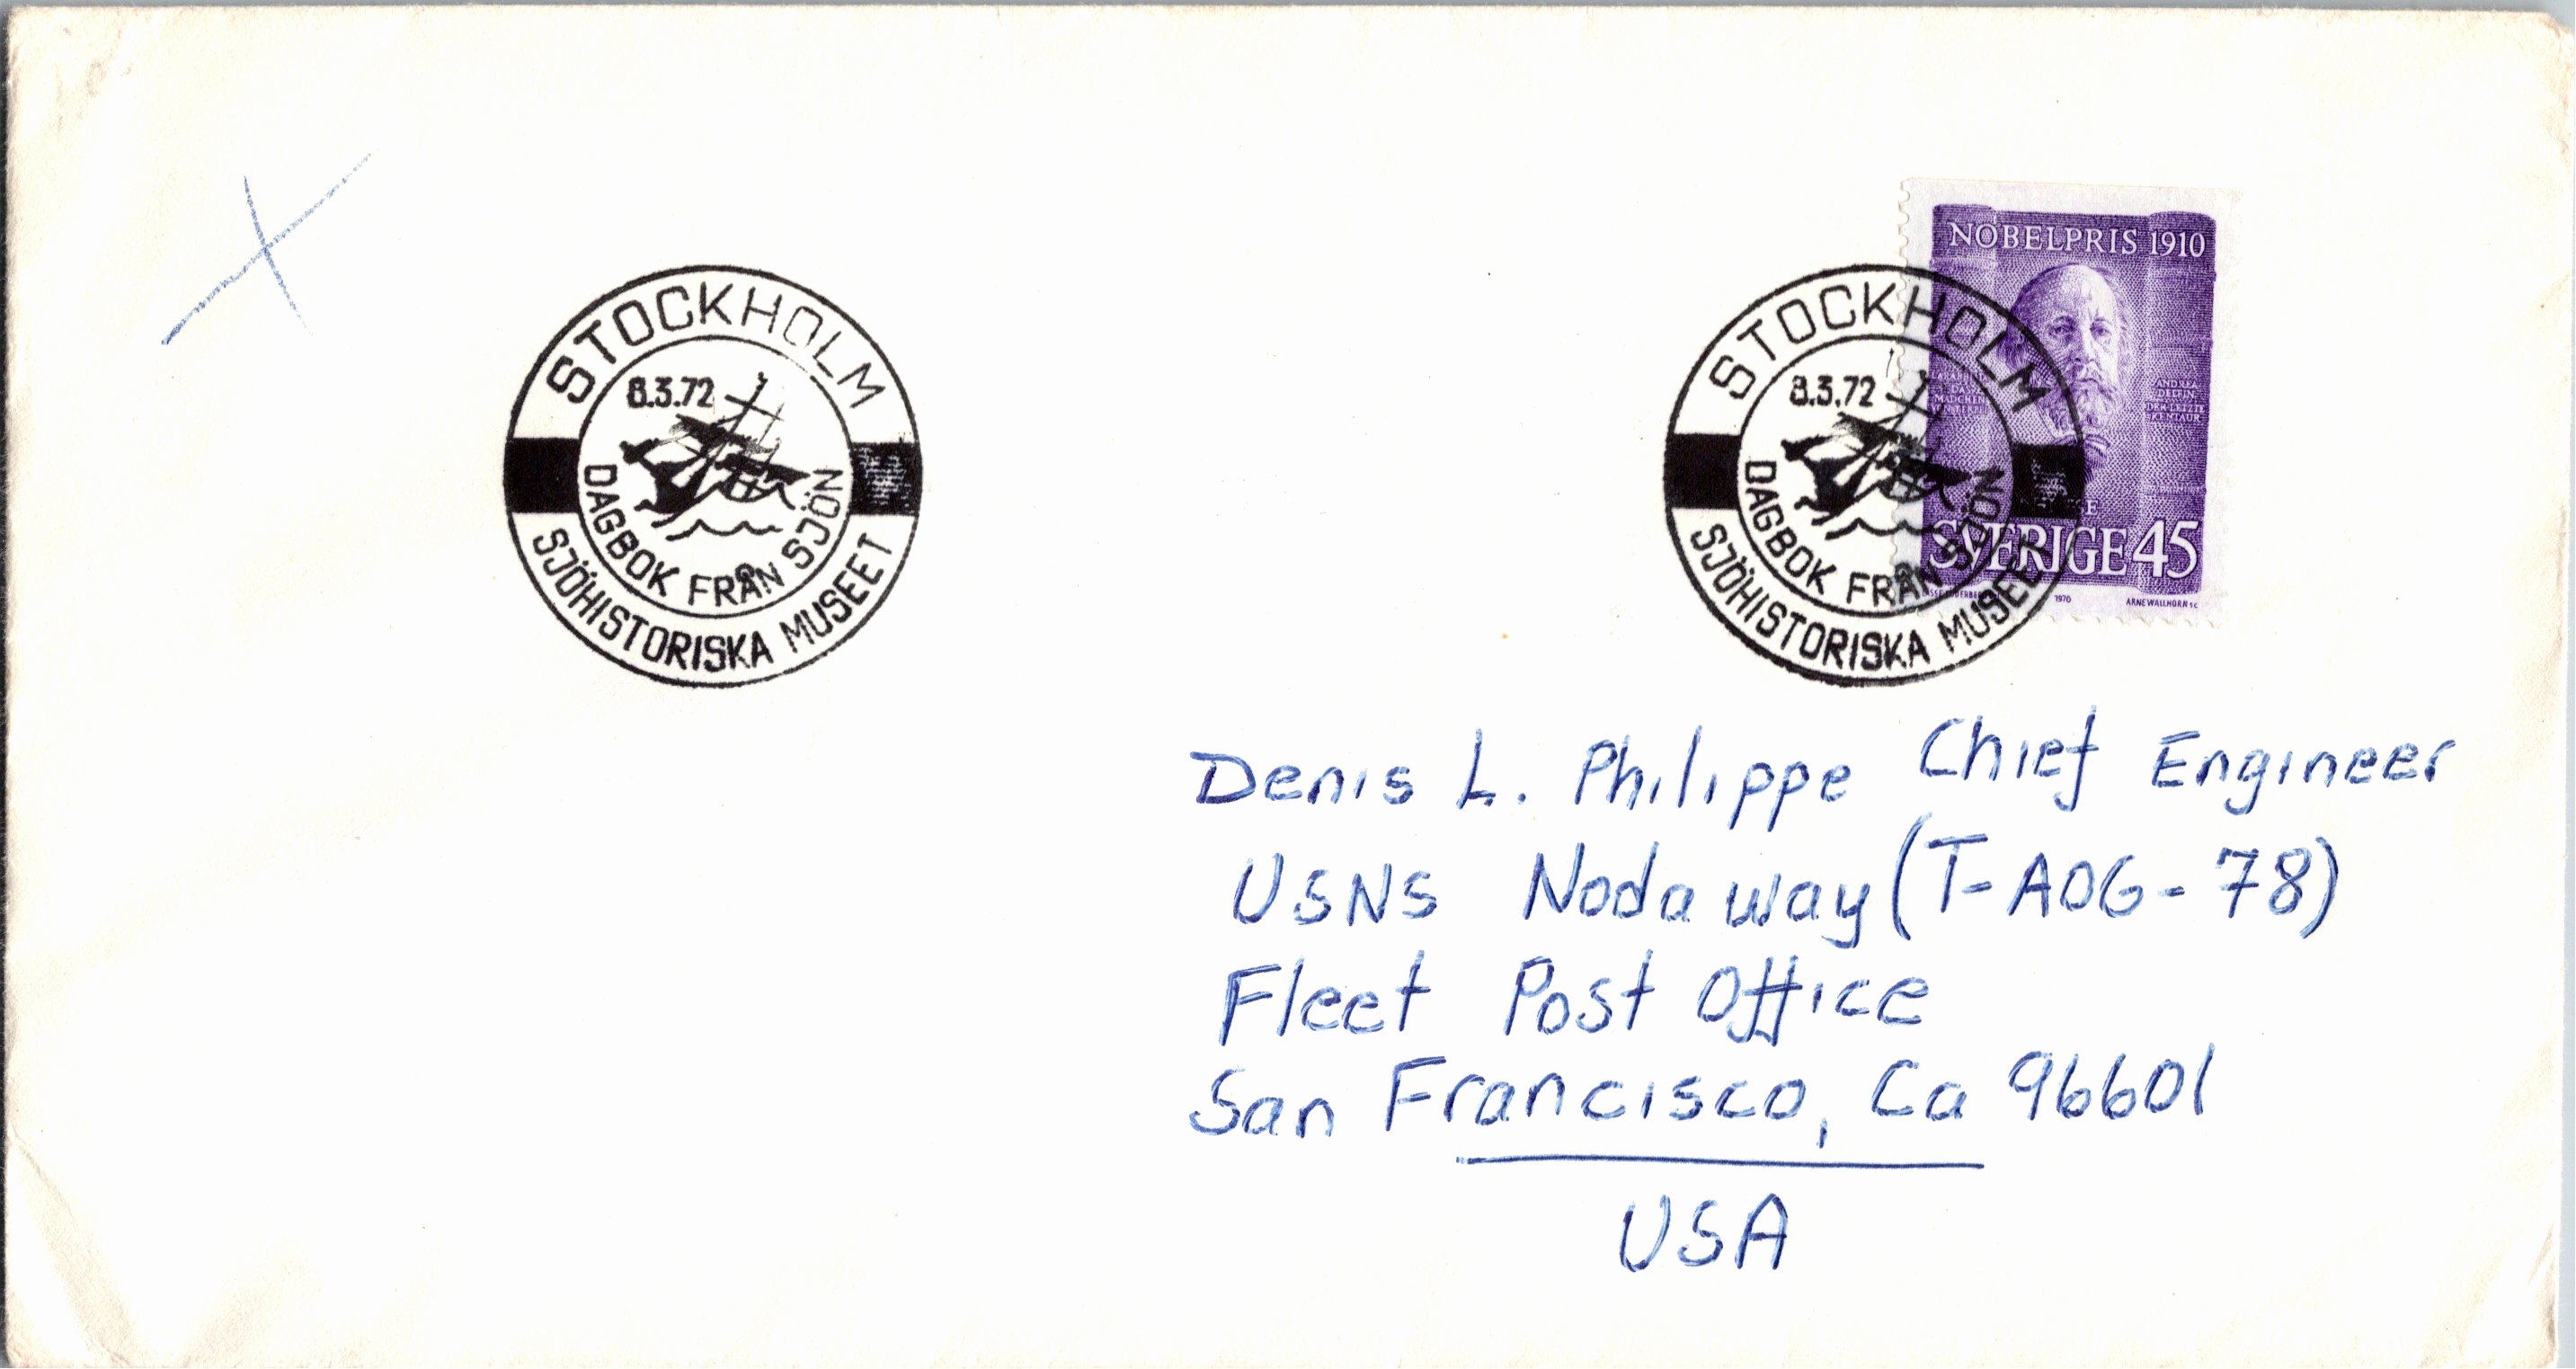 STOCKHOLM
8.3.72
DAGBOK FRÅN SJÖN
SJÖHISTORISKA MUSEET
STOCKHOLM
8.3.72
DAGBOK FRÅN SJÖN
SJÖHISTORISKA MUSEET
NOBELPRIS 1910
MÄDCHEN
ANDREA
DELFIN
DER LETZTE
KENTAUR
SVERIGE 45
1970
ARNE WALLHORN SC
Denis L. Philippe Chief Engineer
USNS Nodaway (T-AOG-78)
Fleet Post Office
San Francisco, Ca 96601
USA